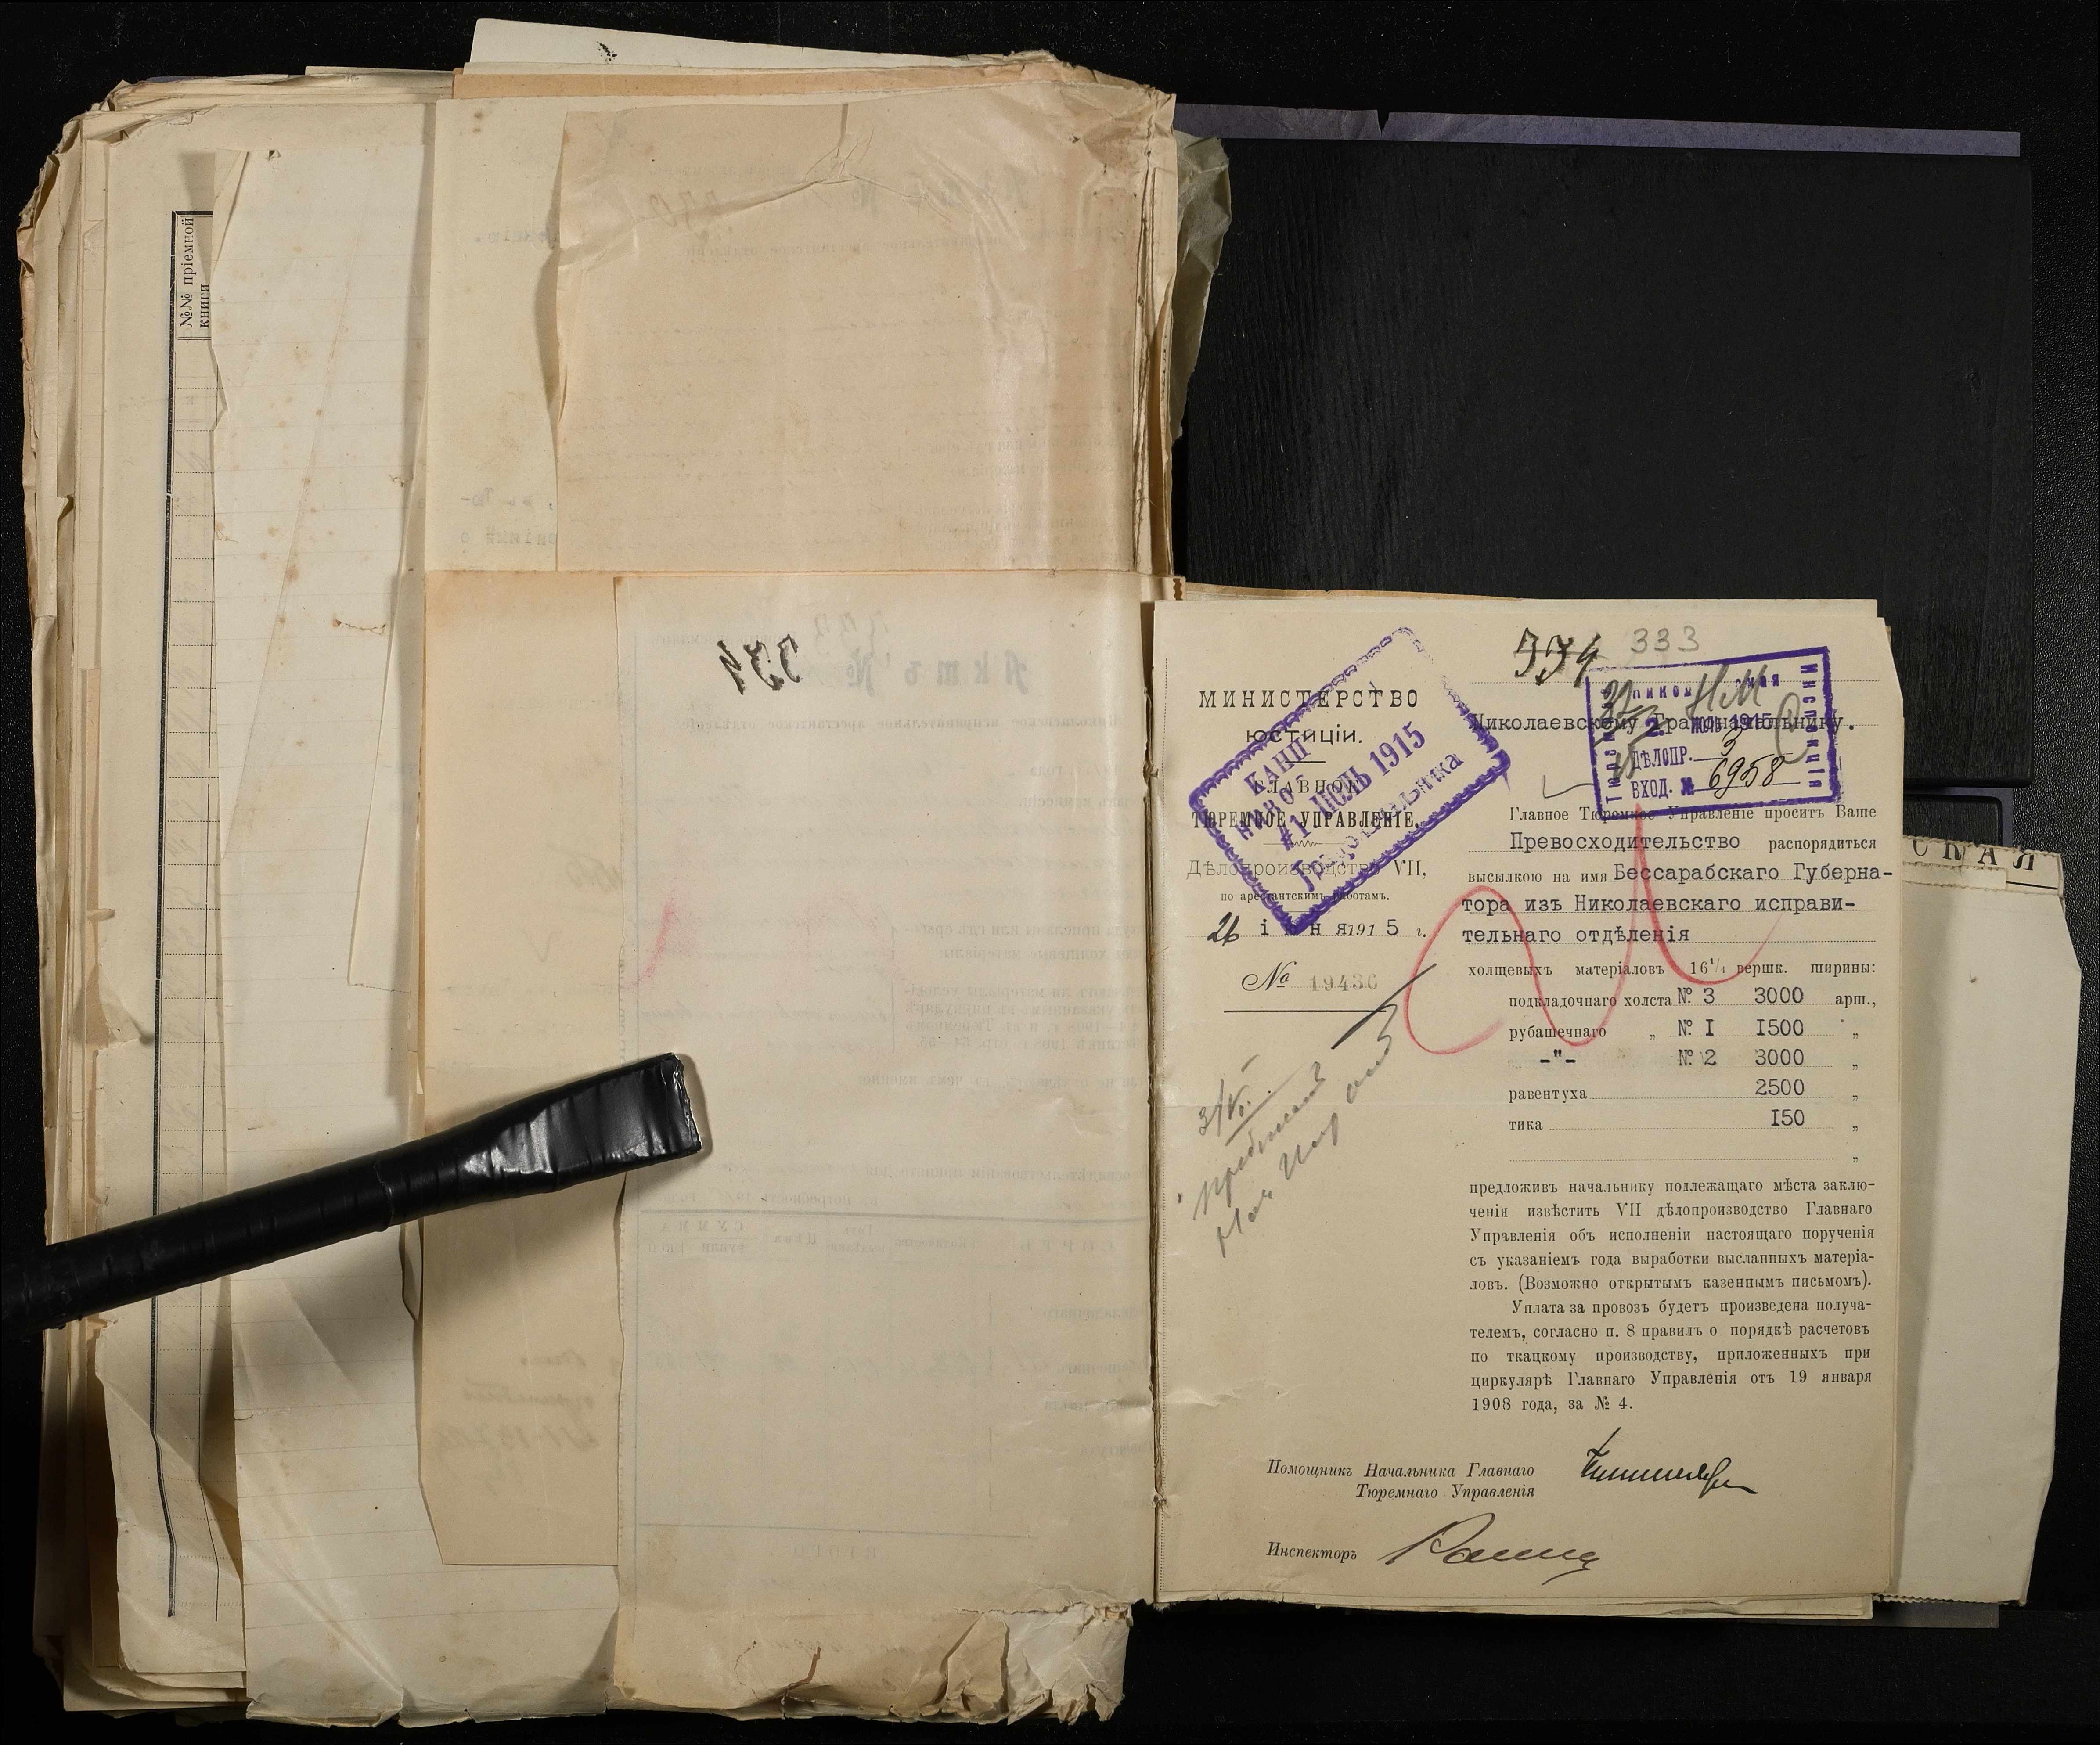 №№ пріемной
книги
334 333
МИНИСТЕРСТВО
ЮСТИЦІИ.
ГЛАВНОЕ
ТЮРЕМНОЕ УПРАВЛЕНІЕ.
Дѣлопроизводство VII,
по арестантскимъ работамъ.
26 іюня 1915 г.
№ 19436
1 ІЮЛЬ 1915
Градоначальника
ИНСПЕКЦІЯ
2 ІЮЛЬ 1915
ДѢЛОПР. 3
ВХОД. № 6958
Николаевскому Градоначальнику.
Главное Тюремное Управленіе проситъ Ваше
Превосходительство распорядиться
высылкою на имя Бессарабскаго Губерна-
тора изъ Николаевскаго исправи-
тельнаго отдѣленія
холщевыхъ матеріаловъ 16¹/₄ вершк. ширины:
подкладочнаго холста № 3 3000 арш.,
рубашечнаго „ № I I500 „
-"- № 2 3000 „
равентуха 2500 „
тика I50 „
„
предложивъ начальнику подлежащаго мѣста заклю-
ченія извѣстить VII дѣлопроизводство Главнаго
Управленія объ исполненіи настоящаго порученія
съ указаніемъ года выработки высланныхъ матеріа-
ловъ. (Возможно открытымъ казеннымъ письмомъ).
Уплата за провозъ будетъ произведена получа-
телемъ, согласно п. 8 правилъ о порядкѣ расчетовъ
по ткацкому производству, приложенныхъ при
циркулярѣ Главнаго Управленія отъ 19 января
1908 года, за № 4.
Помощникъ Начальника Главнаго
Тюремнаго Управленія
Инспекторъ
СКАЯ